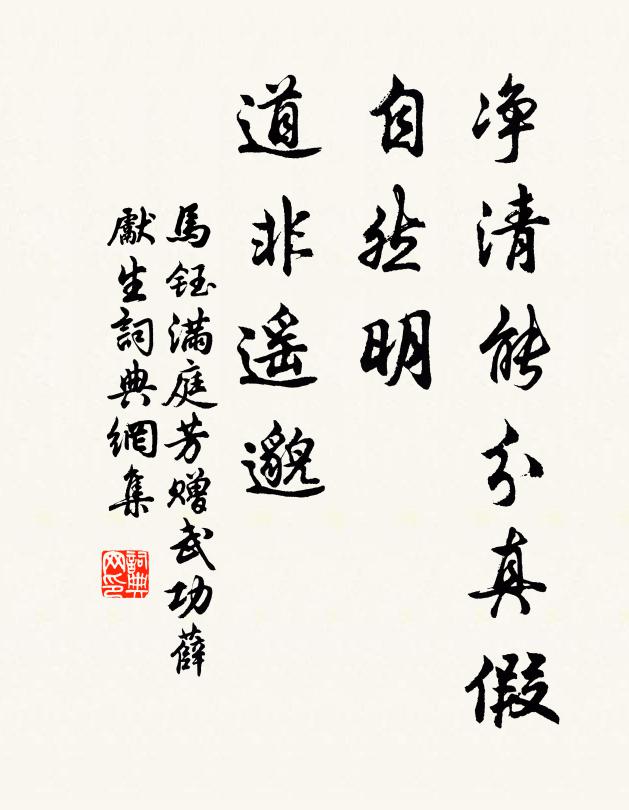 净清能分真假
自然明
道非遥邈
馬鈺滿庭芳赠武功薛
獻生詞典網集
詞典网印